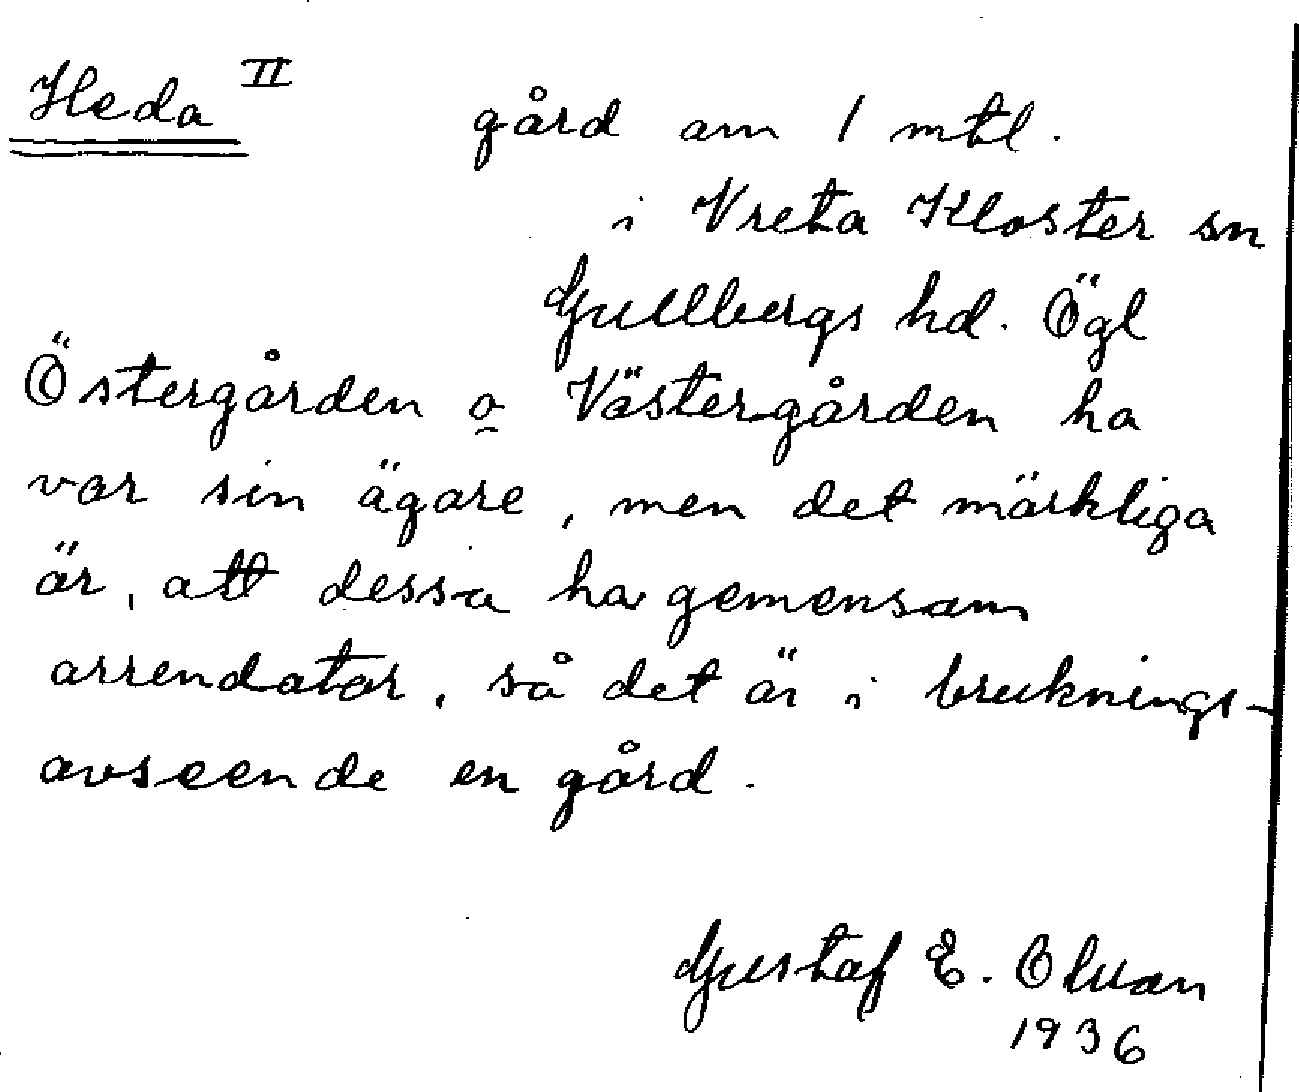 Heda II
gård om 1 mtl.
i Vreta Kloster sn
Gullbergs hd. Ögl
Östergården o Västergården ha
var sin ägare, men det märkliga
är, att dessa ha gemensam
arrendator, så det är i bruknings-
avseende en gård.
Gustaf E.
1936